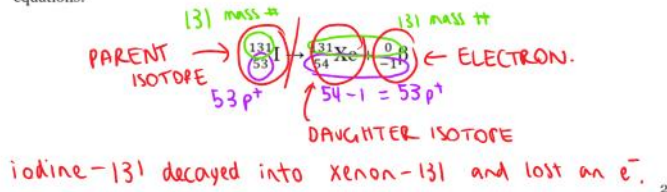 equations.
131 mass # 131 mass #
PARENT ISOTOPE → ¹³¹₅₃I → ¹³¹₅₄Xe + ⁰₋₁β ← ELECTRON.
53 p⁺ 54 - 1 = 53 p⁺
DAUGHTER ISOTOPE
iodine-131 decayed into xenon-131 and lost an e⁻.
2